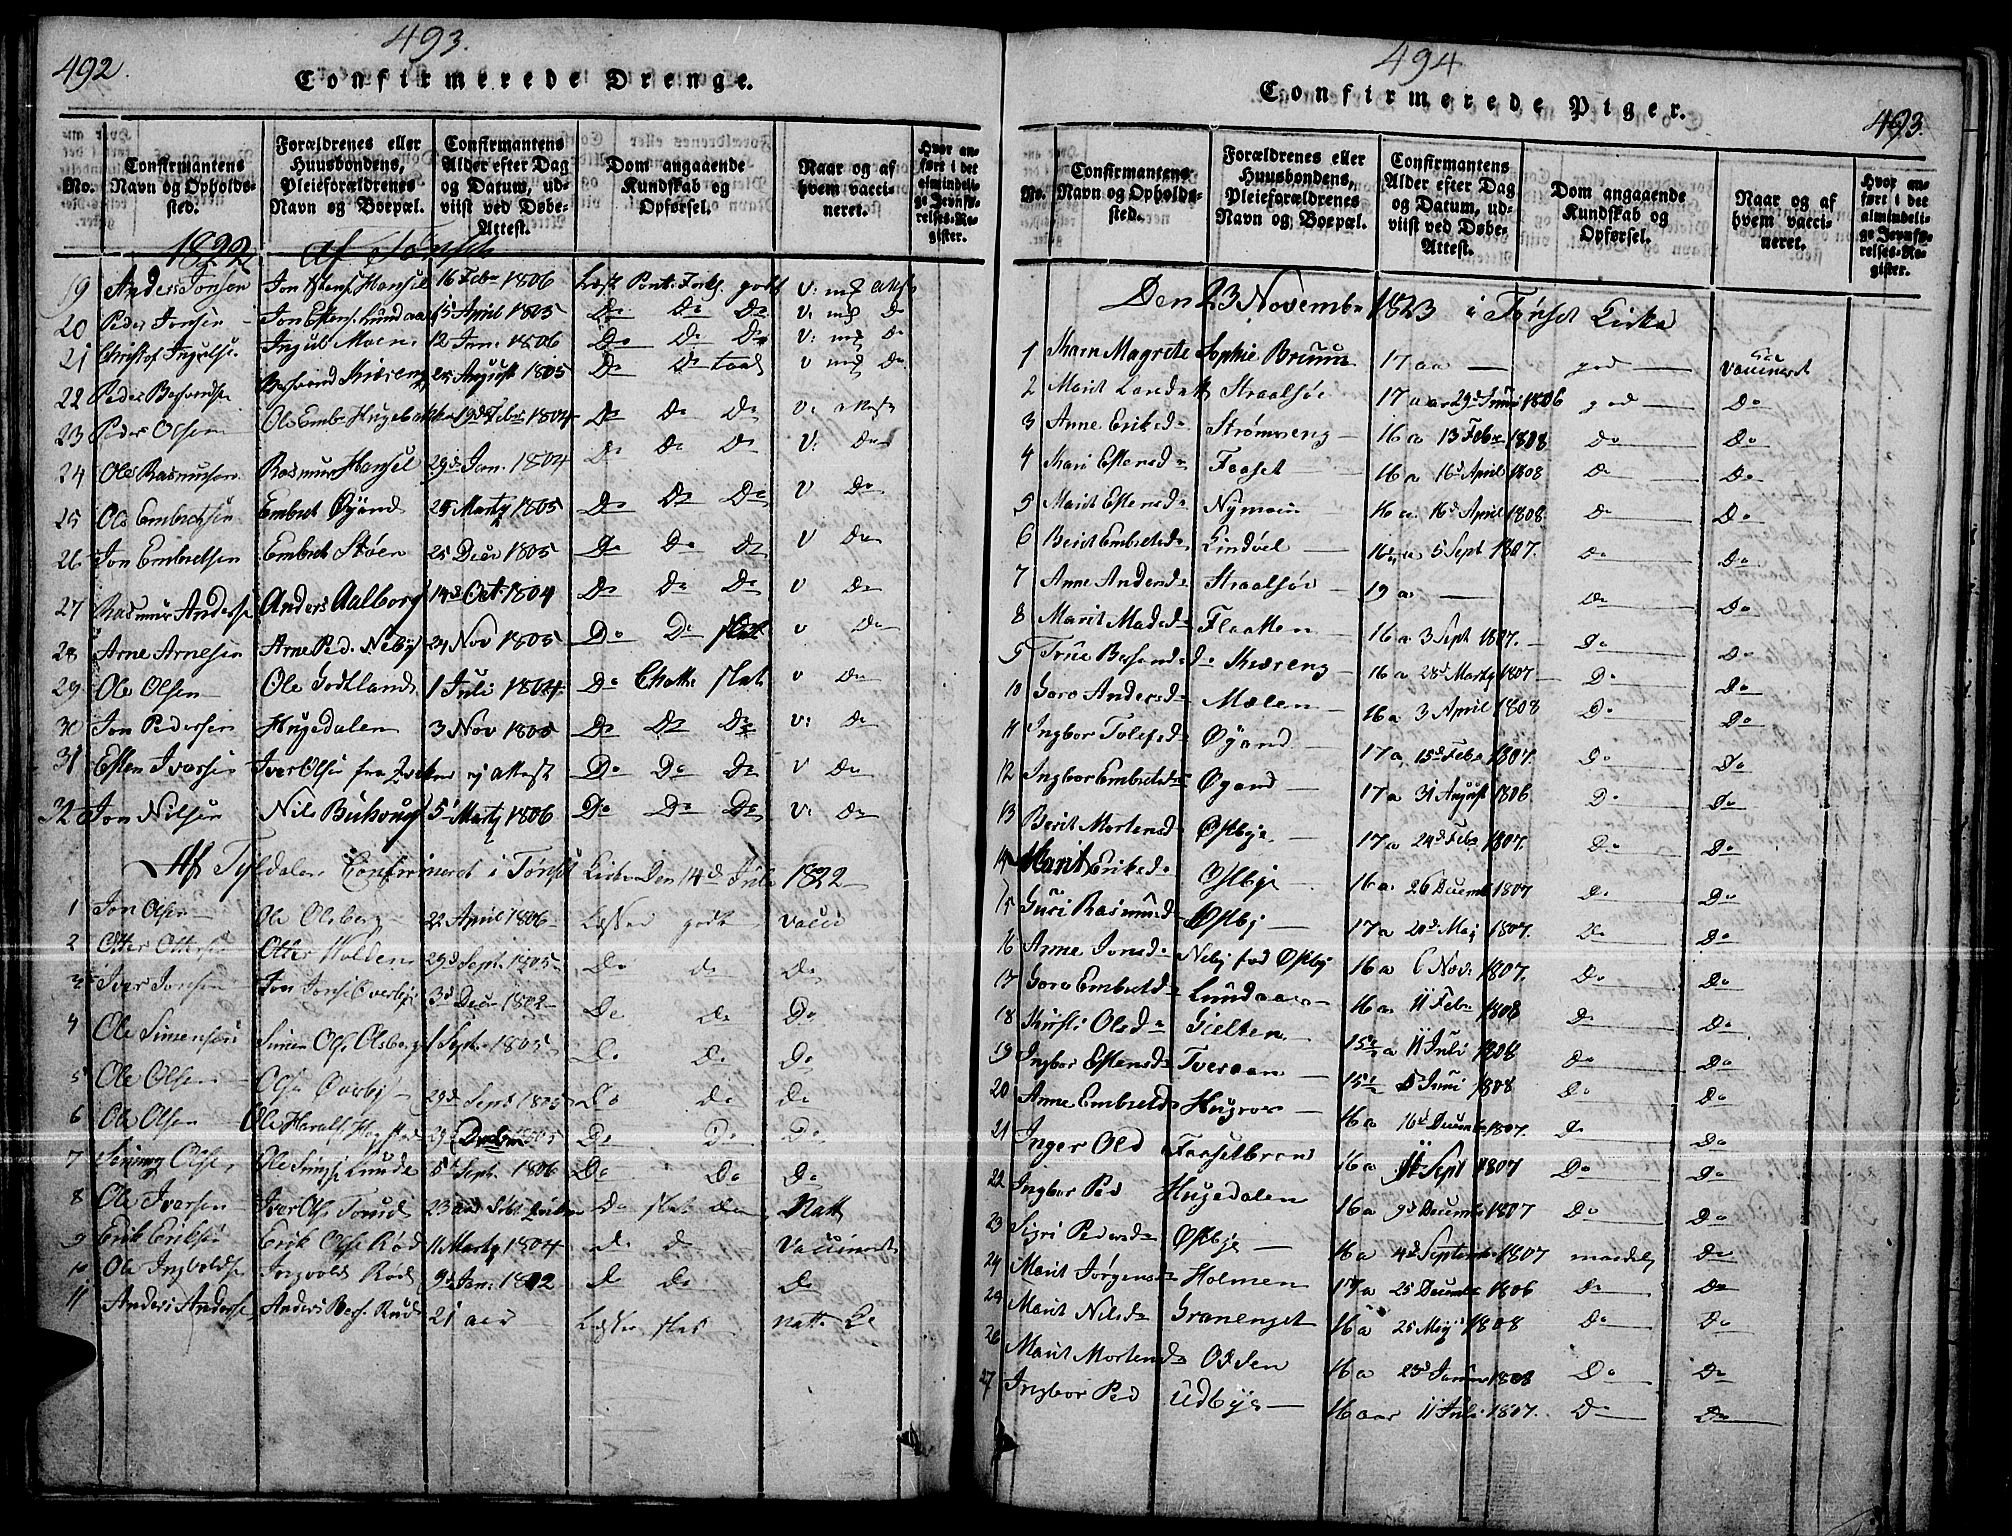 492.
493.
Confirmerede Drenge.
No.
Confirmantens Navn og Opholds-sted.
Forældrenes eller Huusbondens, Pleieforældrenes Navn og Boepæl.
Confirmantens Alder efter Dag og Datum, ud-viist ved Døbe-Attest.
Dom angaaende Kundskab og Opførsel.
Naar og af hvem vacci-neret.
Hvor an-ført i det almindeli-ge Jevnfø-relses-Re-gister.
1822 af Tønset
19 Anders Jonsen 16 Febr 1806
20 Peder Jonsen Jon Estens. Lundaa 15 April 1805 Do Do Do
21 Christof Ingulfs. Ingul Moen 12 Jan: 1806 Do Do Do
22 Peder 25 August 1805 Do Do
23 Peder Olsen Ole Embr 19d Febr 1804 Do Do Do V: attest
24 Ole Rasmussen Rasmus Hansel 29d Jan: 1804 Do Do Do V: Do
25 Ole Embretsen Embret Øyand 29 Marty 1805 Do Do Do V Do
26 Jon Embretsen Embret Støen 25 Decr 1805 Do Do Do V Do
27 Rasmus Anders Anders Aalborg 14d Oct: 1804 Do Do Do v Do
28 Arne Arnesen Arne Ped. Nebÿ 24 Nov 1805 Do Do slet v Do
29 Ole Olsen Ole Godtland 1 Juli 1804 Do slet v Do
30 Jon Pedersen Hugedalen 3 Nov 1805 Do Do Do V: Do
31 Esten Iversen Iver Olsen fra ej attest Do Do Do V Do
32 Jon Nilsen Nils 5 Marty 1806 Do Do Do V: Do
Af Tyldalen Confirmeret i Tønset Kirke Den 14d Juli 1822
1 Jon Olsen Ole Olsberg 22 April 1806 Læsser godt vacci
2 Otter Ottersen Otter Holden 29d Sept. 1805 Do do Do
3 Iver Jonsen Jon Jonse Øverbye 3d Decr 1802 Do do Do
4 Ole Simensen Simen Ols. Olsberg 1 Sept. 1805 Do do Do
5 Ole Olsen Øverby 29d Sept 1805 Do do Do
6 Ole Olsen Ole Haralds 29d 1805 Do Do Do
7 Simmy Olsen 5d Sept. 1806 Do Do Do
8 Ole Iversen Iver Ols. 23 Do slet Do Natt
9 Erik Eriksen Erik Olse Rød 11 Marty 1804 do do Vaccineret
10 Ole Ingvolds Ingvold Rød 9d Jan: 1802 do do Do
11 Anders Anderse Anders 21 aar Læsser slet natt
494
493.
Confirmerede Piger.
No.
Confirmantens Navn og Opholds-sted.
Forældrenes eller Huusbondens, Pleieforældrenes Navn og Boepæl.
Confirmantens Alder efter Dag og Datum, ud-viist ved Døbe-Attest.
Dom angaaende Kundskab og Opførsel.
Naar og af hvem vacci-neret.
Hvor an-ført i det almindeli-ge Jevnfø-relses-Re-gister.
Den 23 Novembr 1823 i Tønset Kirke
1 Karn Magrete Sophie Bruun 17 aa god vaccineret
2 Marit Straalsøe 17 aar 29d Juni 1806 god Do
3 Anne Eriksdr Strømseng 16 a 13 Febr 1808 Do Do
4 Mari Estensdr Faaset 16 a 16d April 1808 Do Do
5 Marit Estensdr Nymoen 16 a 16d April 1808 Do Do
6 Berit Embretsdr Lindvol 16 a 5 Sept 1807. Do Do
7 Anne Andersdr Straalsøe 19 a Do Do
8 Marit Madsdr Flaatten 16 a 3 Sept 1807. Do Do
9 True Kværeng 16 a 28d Marty 1807 Do Do
10 Goro Andersdr Mælen 16 a 3 April 1808 Do Do
11 Ingbor Tolefsdr Øyand 17 a 15d Febr 1807. Do Do
12 Ingbor Embretsdr Øyand 17 a 31 August 1806 Do Do
13 Berit Mortensd Østbye 17 a 24d Febr 1807. Do Do
14 Marit Eriksdr Østbye 16 a 26 Decembr 1807 Do Do
15 Guri Rasmusd Østby 17 a 20d Maj 1807. Do Do
16 Anne Jonsdr Neby fød Østby 16 a 6 Nov. 1807. Do Do
17 Goro Embretdr Lundaaen 16 a 11 Febr 1808 Do Do
18 Kirsti Olsdr Gielten 15½ a 11 Juli 1808 Do Do
19 Ingbor Estensdr Tveraaen 15½ 5 Juni 1808 Do Do
20 Anne Embretsd Hugvor 16 a 16d Decembr 1807. Do Do
21 Inger Old Faasetbrend 16 a 11 Sept 1807 Do Do
22 Ingbor Ped Hugedalen 16 a 9d Decembr 1807 Do Do
23 Sigri Pedersdr Østbye 16 a 4d Septembr 1807 maadelig Do
24 Marit Jørgensdr Holmen 17 a 25 Decembr 1806 Do Do
25 Marit Nilsdr Granenget 16 a 25 Maji 1808 Do Do
26 Marit Mortensdr Odden 16 a 23d Januar 1808 Do Do
27 Ingbor Ped Udbye 16 aar 11 Juli 1807. Do Do